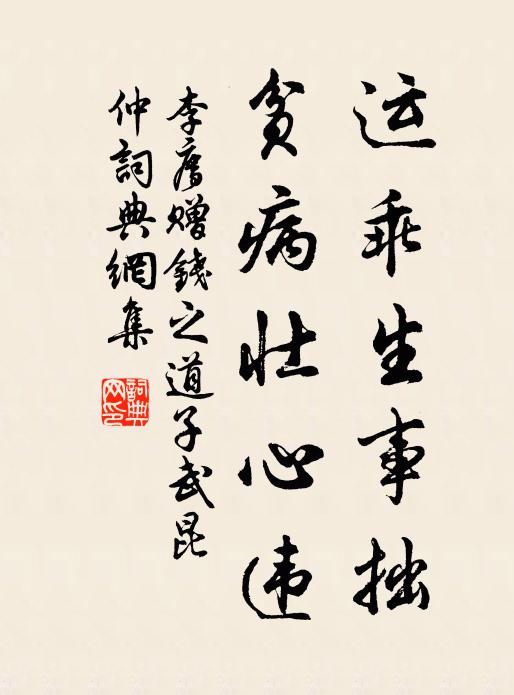 运乖生事拙
贫病壮心违
李廌赠钱之道子武昆
仲詞典網集
詞典
网印